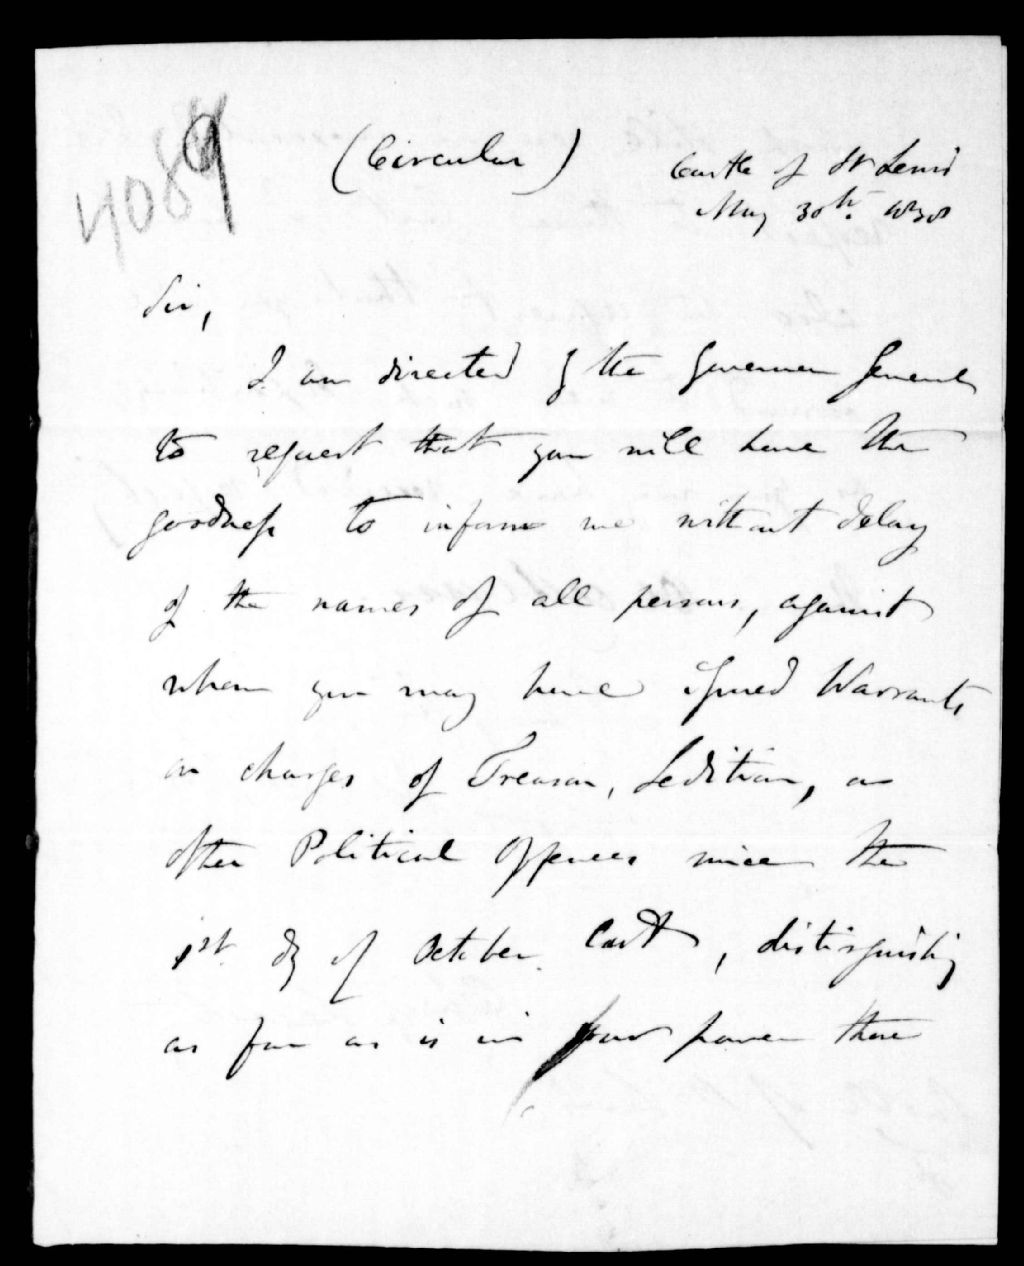 4089
(Circular)
Castle of St Lewis
May 30th. 1838
Sir,
I am directed by the Governor General
to request that you will have the
goodness to inform me without delay
of the names of all persons, against
whom you may have issued Warrants
on charges of Treason, Sedition, or
other Political Offences since the
1st. day of October last, distinguishing
as far as is in your power those